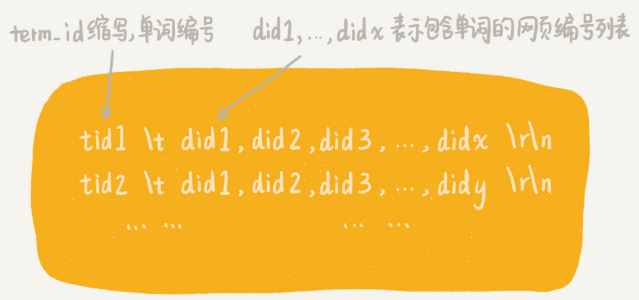 term_id缩写,单词编号 did1,...,didx 表示包含单词的网页编号列表
tid1 \t did1,did2,did3,...,didx \r\n
tid2 \t did1,did2,did3,...,didy \r\n
... ... ... ...